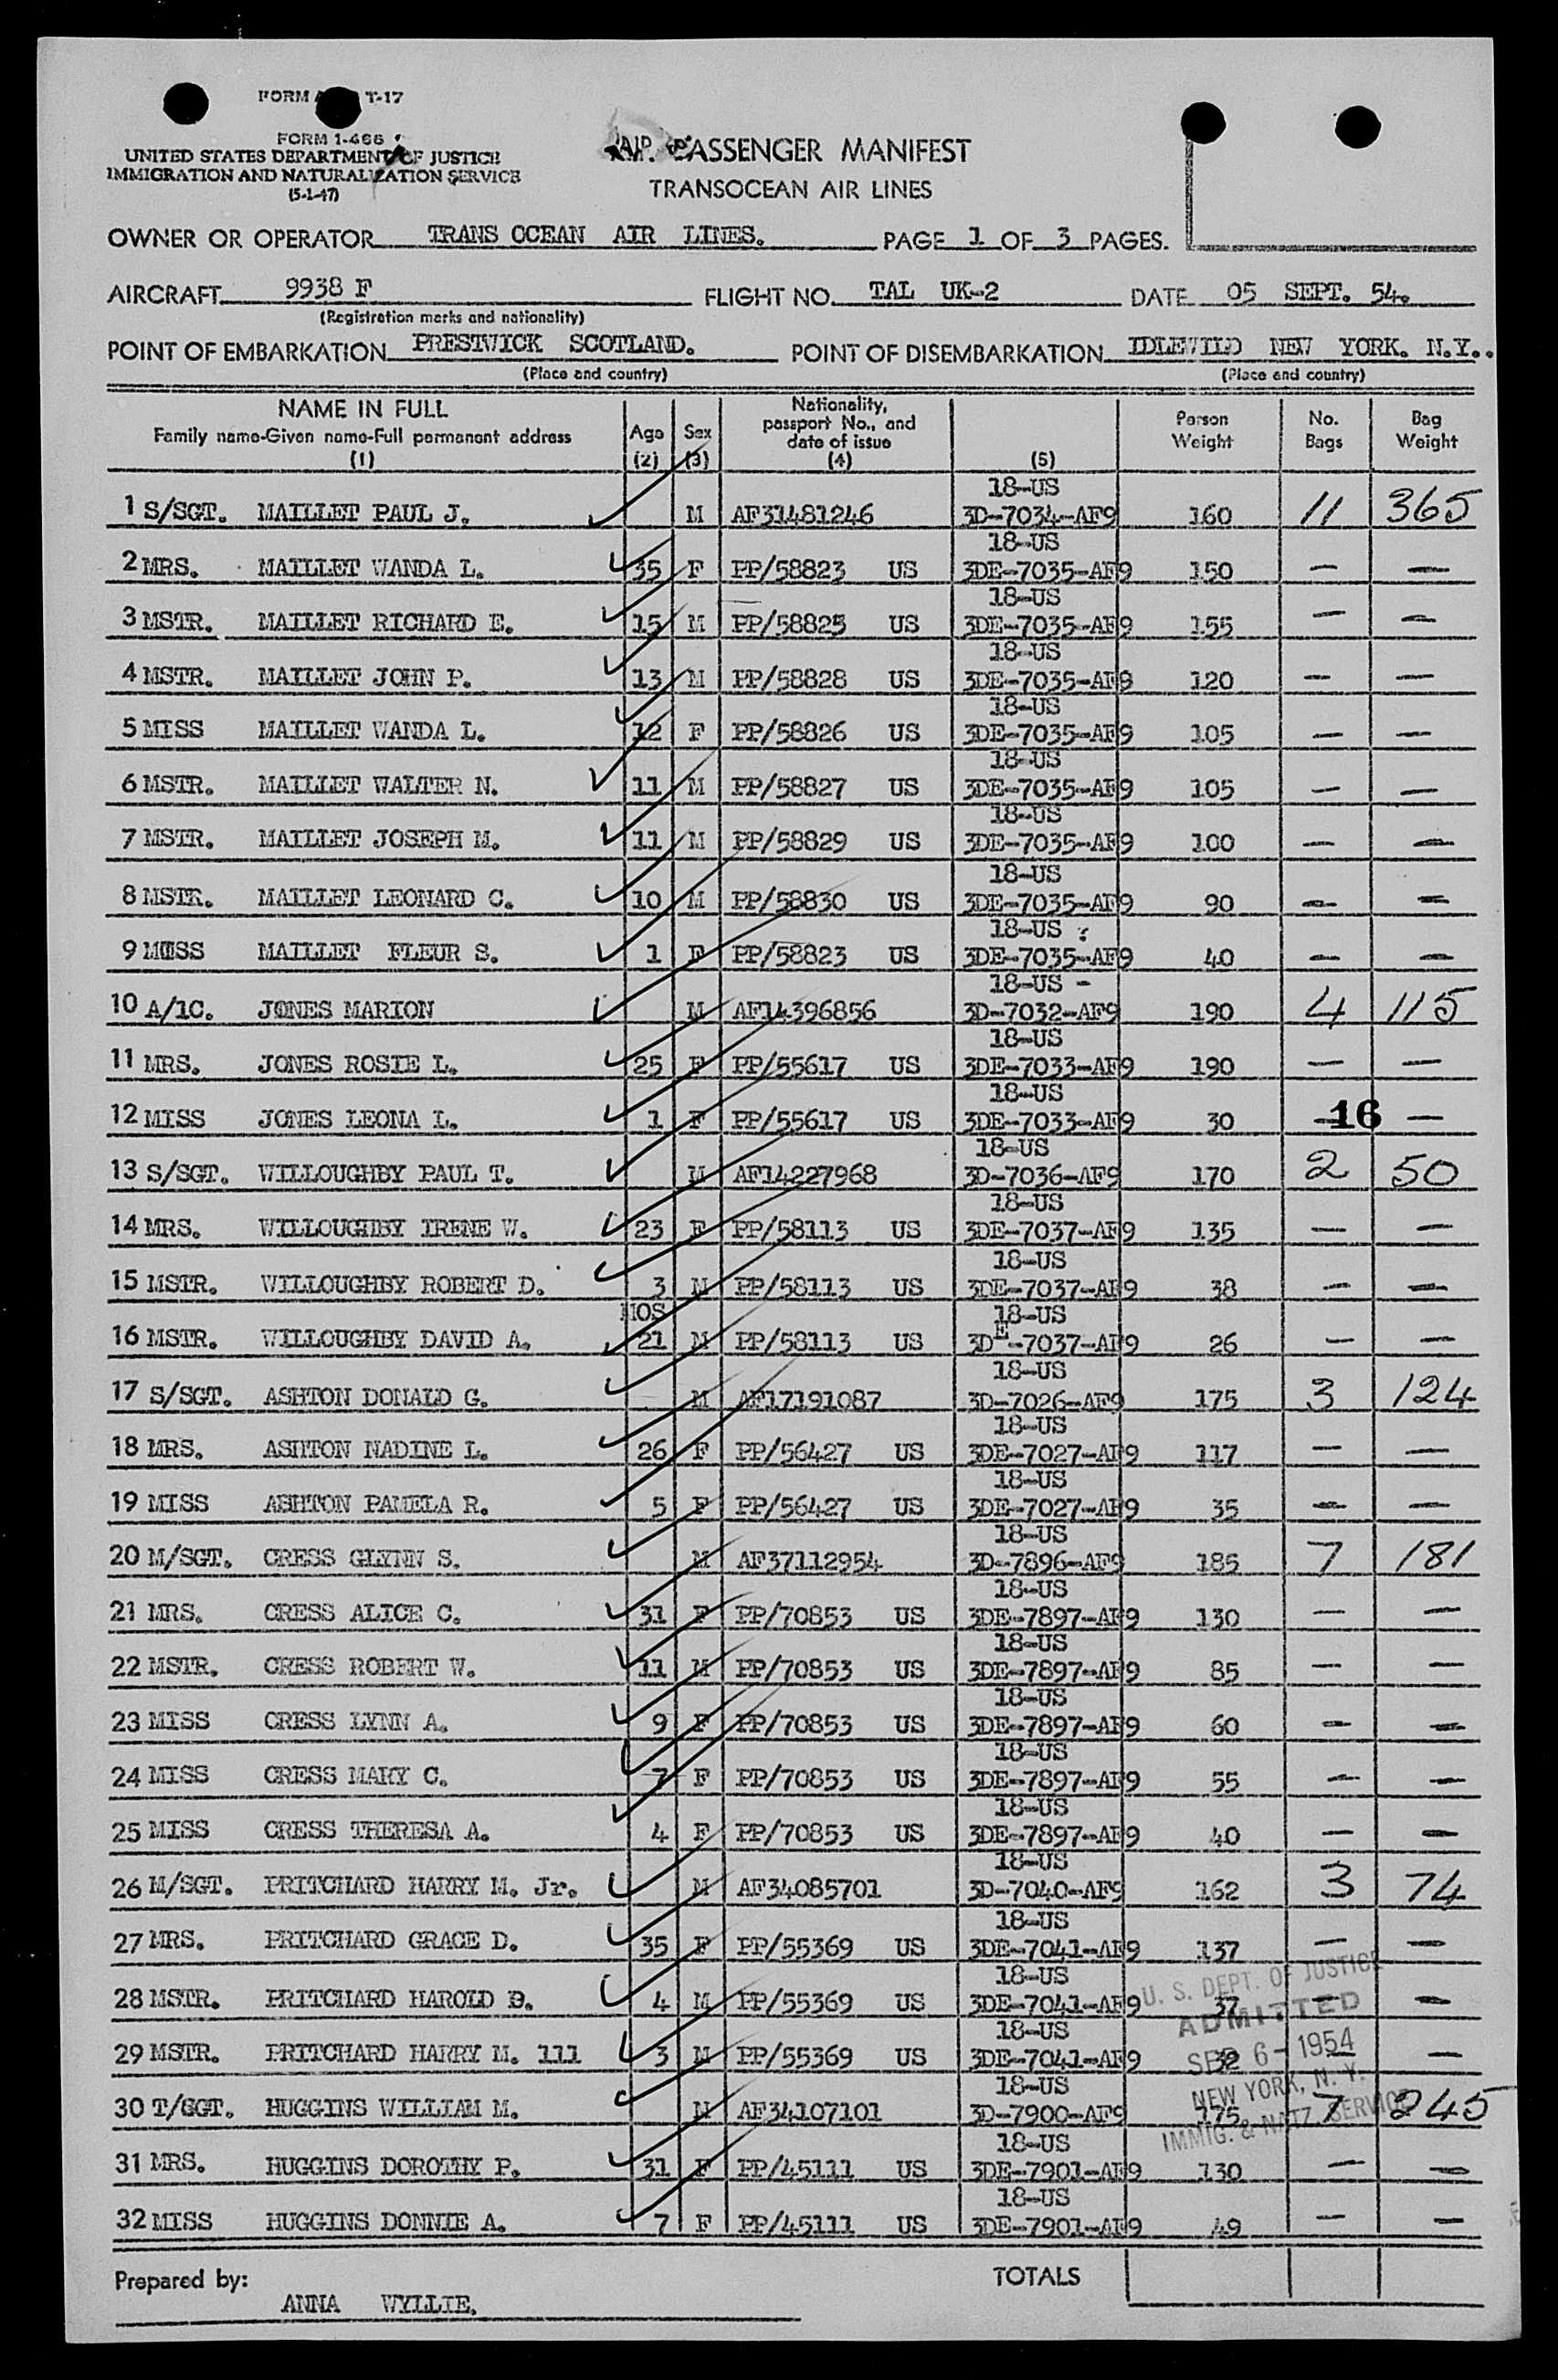 FORM T-17
FORM 1-466
UNITED STATES DEPARTMENT OF JUSTICE
IMMIGRATION AND NATURALIZATION SERVICE
(5-1-47)
PASSENGER MANIFEST
TRANSOCEAN AIR LINES
OWNER OR OPERATOR TRANS OCEAN AIR LINES. PAGE 1 OF 3 PAGES.
AIRCRAFT 9938 F FLIGHT NO. TAL UK-2 DATE 05 SEPT. 54.
(Registration marks and nationality)
POINT OF EMBARKATION PRESTWICK SCOTLAND. POINT OF DISEMBARKATION IDLEWILD NEW YORK. N.Y..
(Place and country) (Place and country)
NAME IN FULL Family name-Given name-Full permanent address (1) Age (2) Sex (3) Nationality, passport No., and date of issue (4) (5) Person Weight No. Bags Bag Weight
18-US
1 S/SGT. MAILLET PAUL J. M AF31481246 3D-7034-AF9 160 11 365
18-US
2 MRS. MAILLET WANDA L. 35 F PP/58823 US 3DE-7035-AF9 150 — —
18-US
3 MSTR. MAILLET RICHARD E. 15 M PP/58825 US 3DE-7035-AF9 155 — —
18-US
4 MSTR. MAILLET JOHN P. 13 M PP/58828 US 3DE-7035-AF9 120 — —
18-US
5 MISS MAILLET WANDA L. 12 F PP/58826 US 3DE-7035-AF9 105 — —
18-US
6 MSTR. MAILLET WALTER N. 11 M PP/58827 US 3DE-7035-AF9 105 — —
18-US
7 MSTR. MAILLET JOSEPH M. 11 M PP/58829 US 3DE-7035-AF9 100 — —
18-US
8 MSTR. MAILLET LEONARD C. 10 M PP/58830 US 3DE-7035-AF9 90 — —
18-US
9 MISS MAILLET FLEUR S. 1 F PP/58823 US 3DE-7035-AF9 40 — —
18-US -
10 A/1C. JONES MARION M AF14396856 3D-7032-AF9 190 4 115
18-US
11 MRS. JONES ROSIE L. 25 F PP/55617 US 3DE-7033-AF9 190 — —
18-US
12 MISS JONES LEONA L. 1 F PP/55617 US 3DE-7033-AF9 30 — 16 —
18-US
13 S/SGT. WILLOUGHBY PAUL T. M AF14227968 3D-7036-AF9 170 2 50
18-US
14 MRS. WILLOUGHBY IRENE W. 23 F PP/58113 US 3DE-7037-AF9 135 — —
18-US
15 MSTR. WILLOUGHBY ROBERT D. 3 M PP/58113 US 3DE-7037-AF9 38 — —
MOS 18-US
16 MSTR. WILLOUGHBY DAVID A. 21 M PP/58113 US 3DE-7037-AF9 26 — —
18-US
17 S/SGT. ASHTON DONALD G. M AF17191087 3D-7026-AF9 175 3 124
18-US
18 MRS. ASHTON NADINE L. 26 F PP/56427 US 3DE-7027-AF9 117 — —
18-US
19 MISS ASHTON PAMELA R. 5 F PP/56427 US 3DE-7027-AF9 35 — —
18-US
20 M/SGT. CRESS GLYNN S. M AF37112954 3D-7896-AF9 185 7 181
18-US
21 MRS. CRESS ALICE C. 31 F PP/70853 US 3DE-7897-AF9 130 — —
18-US
22 MSTR. CRESS ROBERT W. 11 M PP/70853 US 3DE-7897-AF9 85 — —
18-US
23 MISS CRESS LYNN A. 9 F PP/70853 US 3DE-7897-AF9 60 — —
18-US
24 MISS CRESS MARY C. 7 F PP/70853 US 3DE-7897-AF9 55 — —
18-US
25 MISS CRESS THERESA A. 4 F PP/70853 US 3DE-7897-AF9 40 — —
18-US
26 M/SGT. PRITCHARD HARRY M. Jr. M AF34085701 3D-7040-AF9 162 3 74
18-US
27 MRS. PRITCHARD GRACE D. 35 F PP/55369 US 3DE-7041-AF9 137 — —
18-US
28 MSTR. PRITCHARD HAROLD D. 4 M PP/55369 US 3DE-7041-AF9 37 — —
18-US
29 MSTR. PRITCHARD HARRY M. 111 3 M PP/55369 US 3DE-7041-AF9 32 — —
18-US
30 T/SGT. HUGGINS WILLIAM M. M AF34107101 3D-7900-AF9 175 7 245
18-US
31 MRS. HUGGINS DOROTHY P. 31 F PP/45111 US 3DE-7901-AF9 130 — —
18-US
32 MISS HUGGINS DONNIE A. 7 F PP/45111 US 3DE-7901-AF9 49 — —
U. S. DEPT. OF JUSTICE
ADMITTED
SEP 6 - 1954
NEW YORK, N. Y.
IMMIG. & NATZ. SERVICE
Prepared by: TOTALS
ANNA WYLLIE.